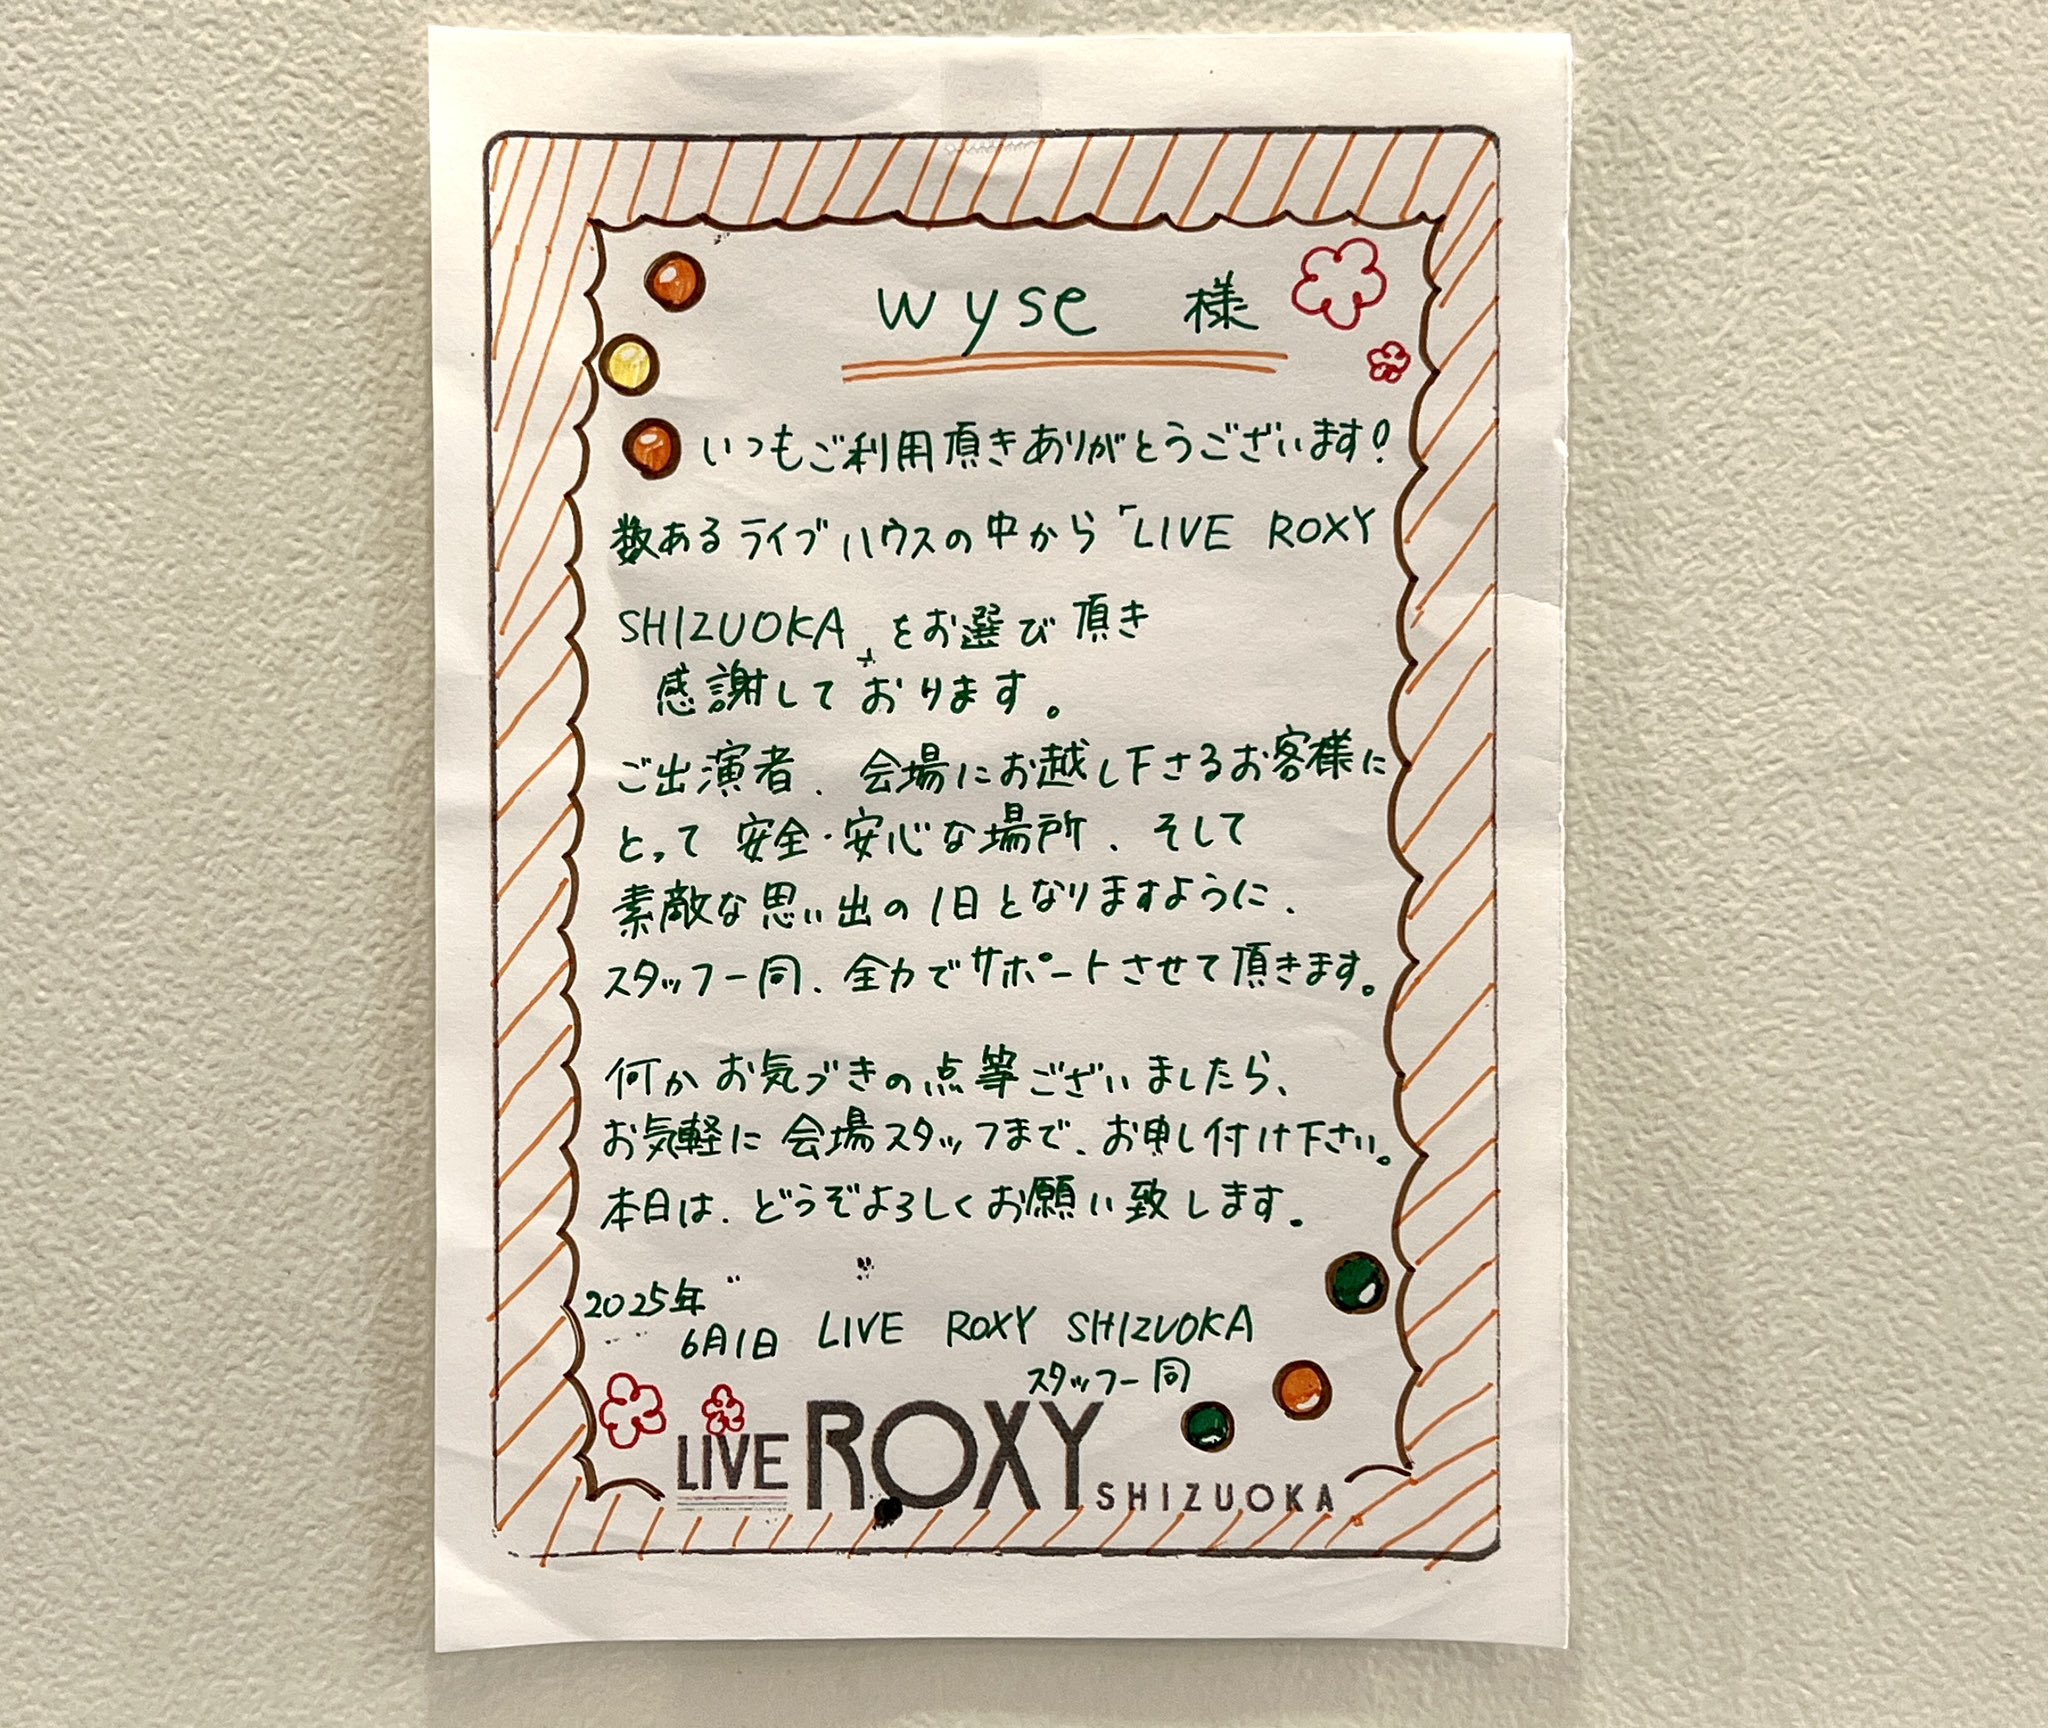 wyse 様
いつもご利用頂きありがとうございます!
数あるライブハウスの中から「LIVE ROXY
SHIZUOKA」をお選び頂き
感謝しております。
ご出演者、会場にお越し下さるお客様に
とって安全・安心な場所、そして
素敵な思い出の1日となりますように、
スタッフ一同、全力でサポートさせて頂きます。
何かお気づきの点等ございましたら、
お気軽に会場スタッフまで、お申し付け下さい。
本日は、どうぞよろしくお願い致します。
2025年
6月1日 LIVE ROXY SHIZUOKA
スタッフ一同
LIVE ROXY SHIZUOKA